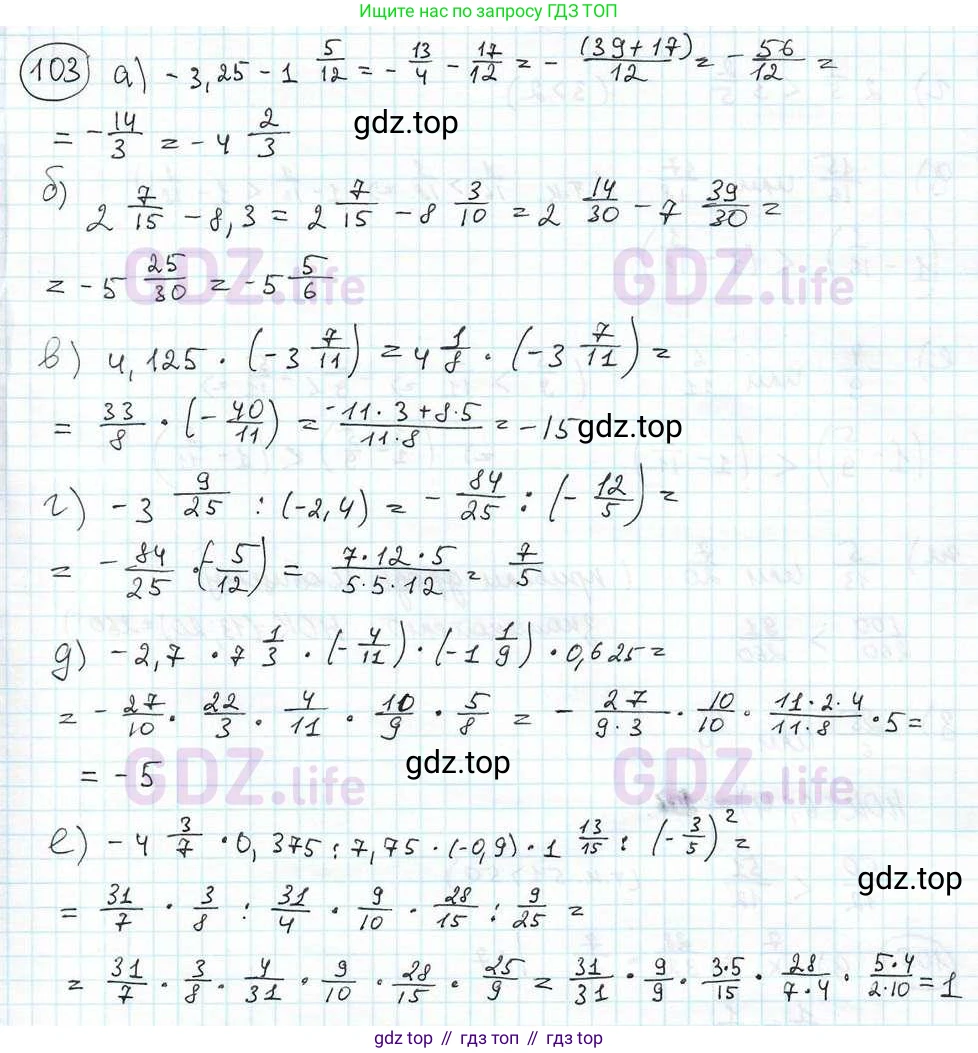 Ищите нас по запросу ГДЗ ТОП
103 а) -3,25 - 1 5/12 = - 13/4 - 17/12 = - (39+17)/12 = - 56/12 =
= - 14/3 = - 4 2/3
gdz.top
б)
2 7/15 - 8,3 = 2 7/15 - 8 3/10 = 2 14/30 - 7 39/30 =
= -5 25/30 = -5 5/6
GDZ.life GDZ.life
в) 4,125 · (-3 7/11) = 4 1/8 · (-3 7/11) =
= 33/8 · (- 40/11) = -11·3+8·5/11·8 = -15
gdz.top
г) -3 9/25 : (-2,4) = - 84/25 : (- 12/5) =
= - 84/25 · (- 5/12) = 7·12·5/5·5·12 = 7/5
д) -2,7 · 7 1/3 · (- 4/11) · (-1 1/9) · 0,625 =
= - 27/10 · 22/3 · 4/11 · 10/9 · 5/8 = - 27/9·3 · 10/10 · 11·2·4/11·8 · 5 =
= -5
gdz.top
GDZ.life GDZ.life
е) -4 3/7 · 0,375 : 7,75 · (-0,9) · 1 13/15 : (- 3/5)² =
= 31/7 · 3/8 : 31/4 · 9/10 · 28/15 : 9/25 =
gdz.top
= 31/7 · 3/8 · 4/31 · 9/10 · 28/15 · 25/9 = 31/31 · 9/9 · 3·5/15 · 28/7·4 · 5·4/2·10 = 1
gdz.top // гдз топ // gdz top // гдз top